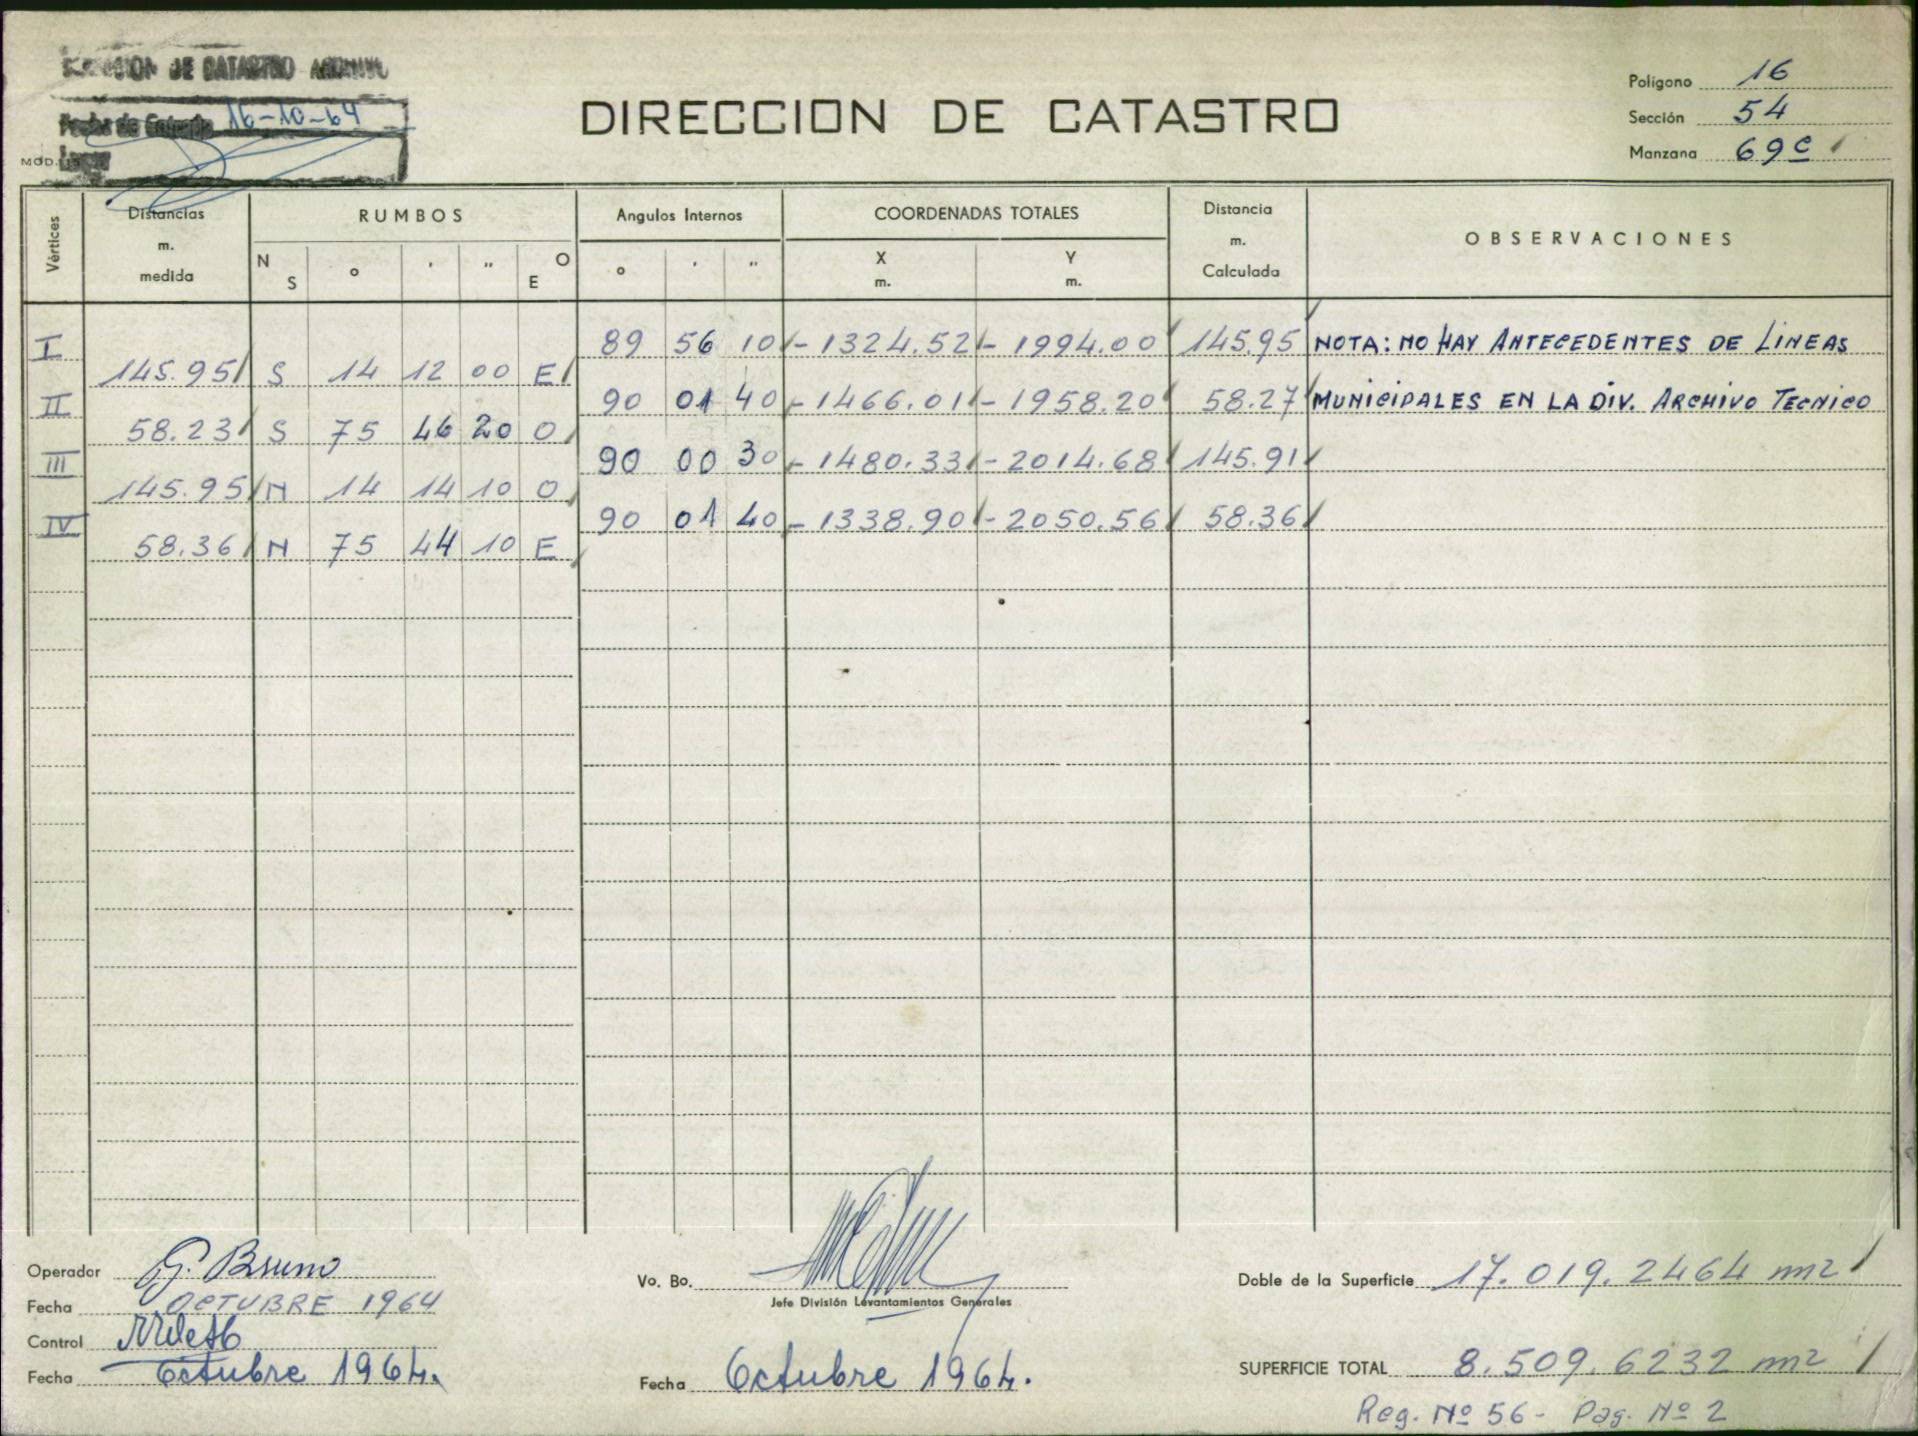 DE CATASTRO ARCHIVO
Fecha de 16-10-64
MOD.
DIRECCION DE CATASTRO
Polígono 16
Sección 54
Manzana 69c
Vértices
Distancias m. medida
RUMBOS
N S ° ' " O E
Angulos Internos
° ' "
COORDENADAS TOTALES
X m. Y m.
Distancia m. Calculada
OBSERVACIONES
I 89 56 10 -1324.52 -1994.00 145.95 NOTA: NO HAY ANTECEDENTES DE LINEAS
145.95 S 14 12 00 E
II 90 01 40 -1466.01 -1958.20 58.27 MUNICIPALES EN LA DIV. ARCHIVO TECNICO
58.23 S 75 46 20 O
III 90 00 30 -1480.33 -2014.68 145.91
145.95 N 14 14 10 O
IV 90 01 40 -1338.90 -2050.56 58.36
58.36 N 75 44 10 E
Operador G. Bruno
Fecha OCTUBRE 1964
Control
Fecha Octubre 1964.
Vo. Bo.
Jefe División Levantamientos Generales
Fecha Octubre 1964.
Doble de la Superficie 17.019.2464 m2
SUPERFICIE TOTAL 8.509.6232 m2
Reg. Nº 56 - Pag. Nº 2